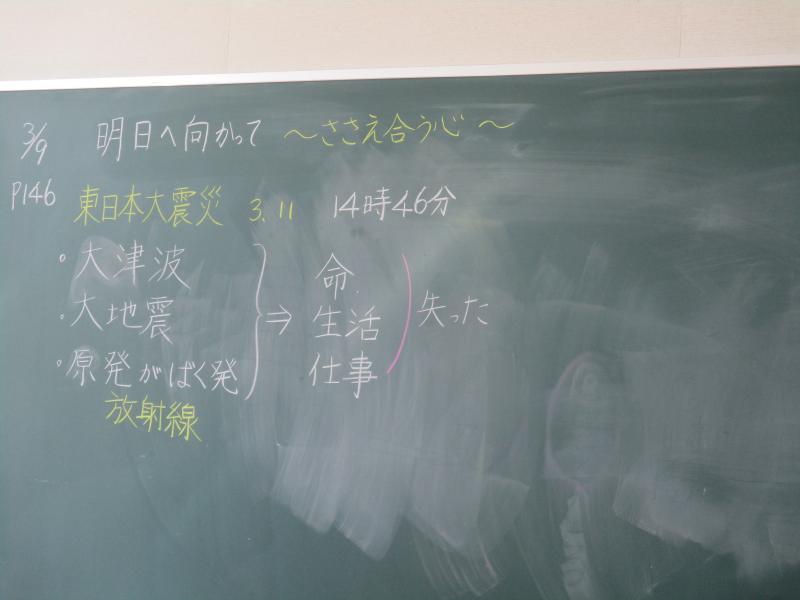 3/9 明日へ向かって ～ささえ合う心～
P146 東日本大震災 3.11 14時46分
・大津波
・大地震
・原発がばく発
放射線
⇒ 命
生活
仕事
失った